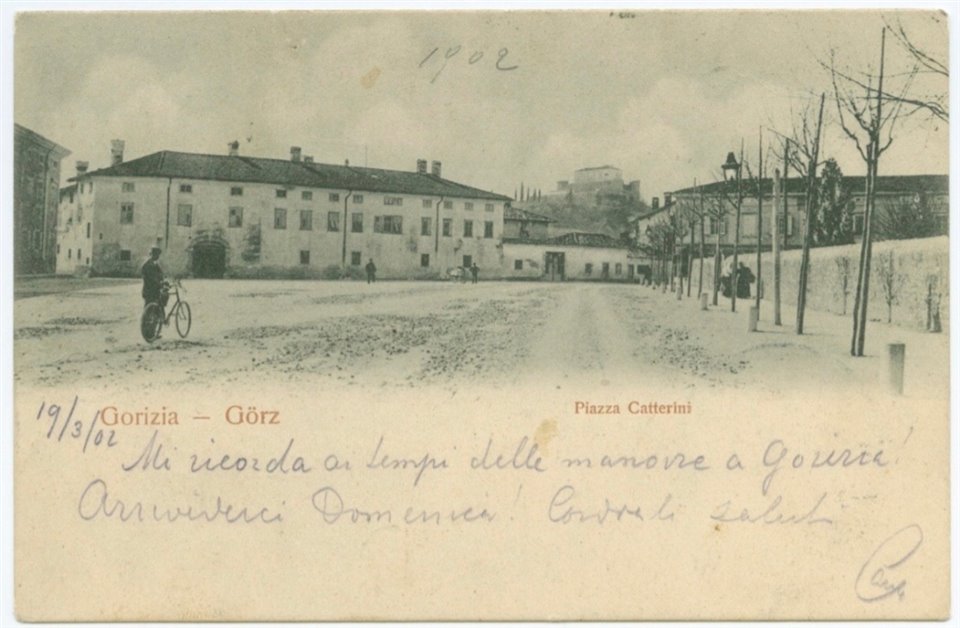 1902
Gorizia – Görz
Piazza Catterini
19/3/02
Mi ricorda ai tempi delle manovre a Gorizia!
Arrivederci Domenica! Cordiali saluti